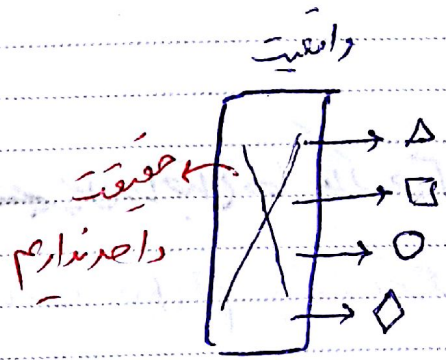 واقعیت
حقیقت
واحد نداریم